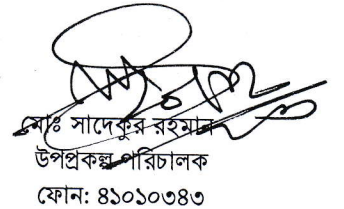 মোঃ সাদেকুর রহমান
উপপ্রকল্প পরিচালক
ফোন: ৪১০১০৩৪৩